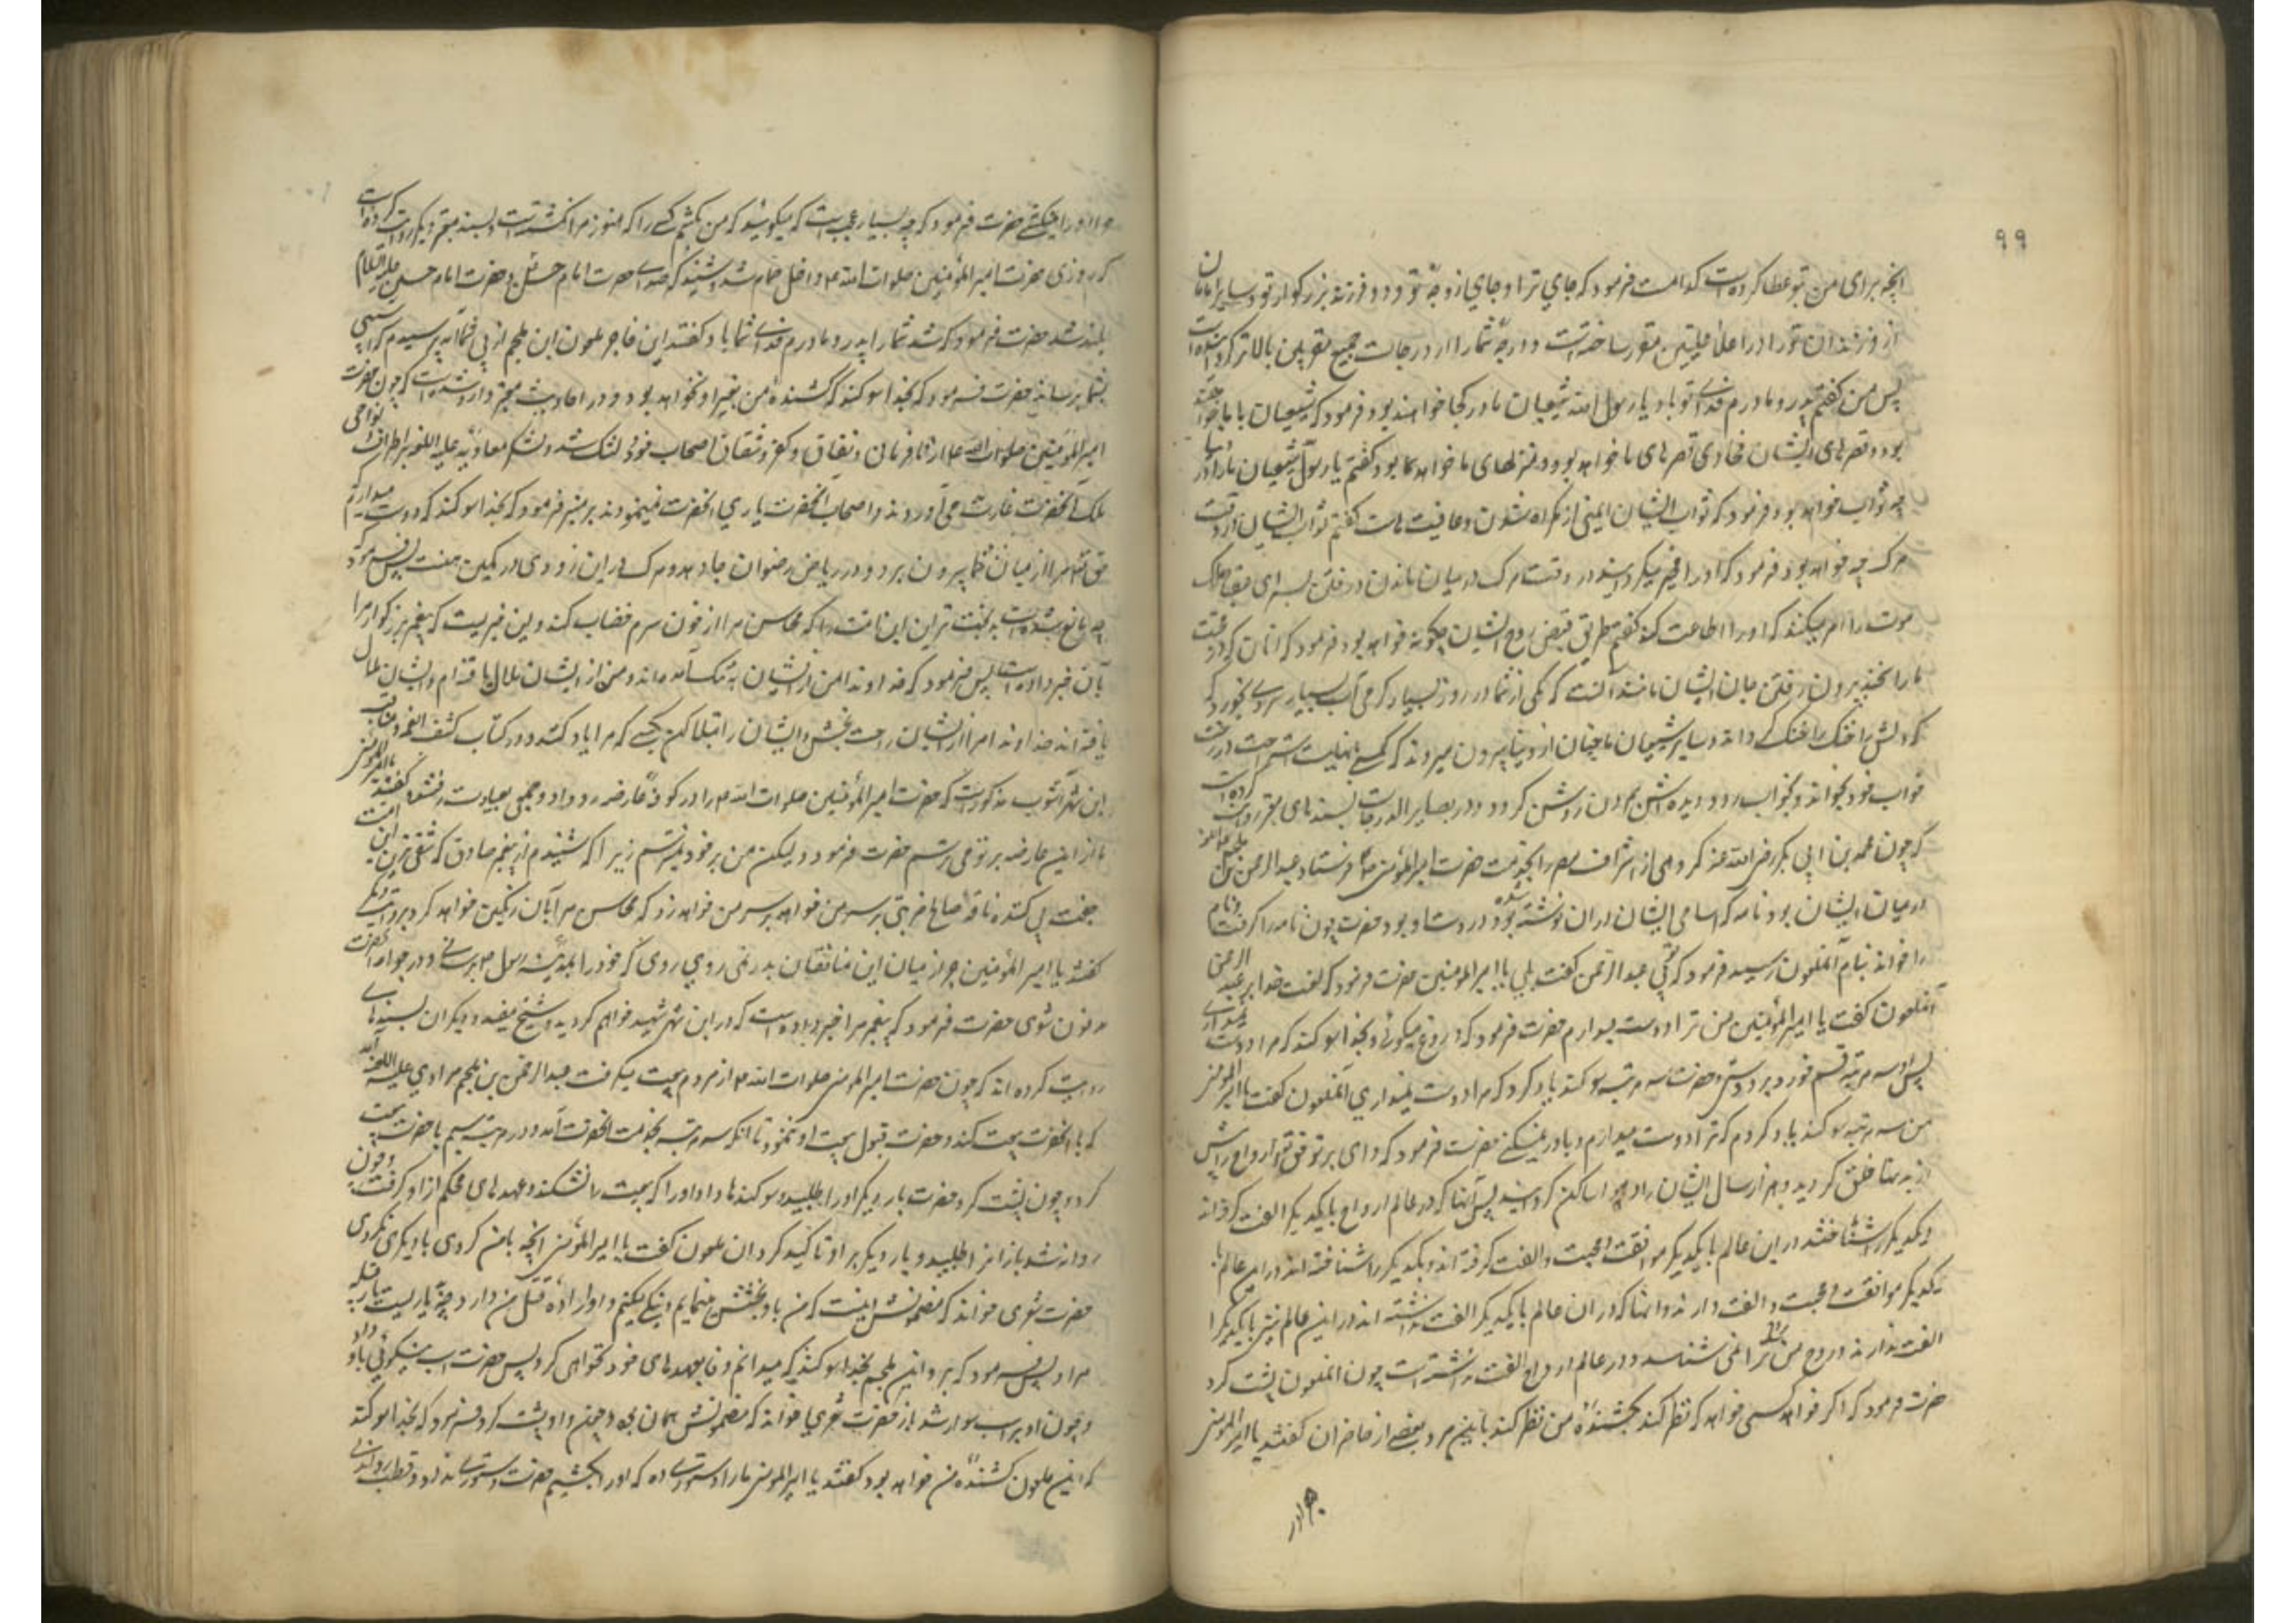 ۹۹
آنچه برای من بتو عطا کرده است کدامست فرمود که جای ترا و جای زوجهٔ تو و دو فرزند بزرگوار تو و سایر امامان
از فرزندان تو را در اعلا علیین مقرر ساخته است و درجهٔ شما را از درجات جمیع مقربین بالاتر گردانیده است
پس من گفتم پدر و مادرم فدای تو باد یا رسول الله شیعیان ما در کجا خواهند بود فرمود که شیعیان با ما خواهند
بود و قصرهای ایشان محاذی قصرهای ما خواهد بود و منزلهای ما خواهد بود گفتم یا رسول الله شیعیان ما را در دنیا
چه ثواب خواهد بود فرمود که ثواب ایشان ایمنی از گمراه شدن و عافیت است گفتم ثواب ایشان در وقت
مرگ چه خواهد بود فرمود که او را مخیر میگردانند در وقت مرگ در میان ماندن و رفتن برای قبض ملک
موت را امر میکنند که او را اطاعت کند گفتم طریق قبض روح ایشان چگونه خواهد بود فرمود که آنان که در محبت
ما راسخند بیرون رفتن جان ایشان مانند آنست که یکی از شما در روز بسیار گرمی آب بسیار سردی بخورد که
دلش را خنک گرداند و سایر شیعیان ما چنان از دنیا بیرون میروند که کسی بنهایت استراحت در رخت
خواب خود بخواند و بخواب رود و دیده اش بمردن روشن گردد و در بصایر الدرجات بسندهای معتبر روایت کرده است
که چون محمد بن ابی بکر رضی الله عنه گروهی از اشراف مصر را بخدمت حضرت امیر المؤمنین فرستاد عبد الرحمن بن ملجم علیه اللعنه
در میان ایشان بود نامه که اسامی ایشان در آن نوشته شده بود در دست او بود حضرت چون نامه را گرفت و نام
را خواند بنام آن ملعون رسید فرمود که توئی عبد الرحمن گفت بلی یا امیر المومنین حضرت فرمود که لعنت خدا بر عبد الرحمن
آن ملعون گفت یا امیر المؤمنین من ترا دوست میدارم حضرت فرمود که دروغ میگوئی و بخدا سوکند که مرا دوست نمیداری
پس او سه مرتبه قسم خورد بر دوستی و حضرت سه مرتبه سوکند یاد کرد که مرا دوست نمیداری آن ملعون گفت یا امیر المومنین
من سه مرتبه سوکند یاد کردم که ترا دوست میدارم و باور نمیکنی حضرت فرمود که وای بر تو حق تعالی ارواح را پیش
از بدنها خلق گردید و هزار سال ایشان را در هوا ساکن گردانید پس آنها که در عالم ارواح با یکدیگر الفت گرفته اند
و یکدیگر را شناختند در این عالم با یکدیگر موافقت و محبت و الفت گرفته اند و یکدیگر را شناخته اند در این عالم با
یکدیگر موافقت و محبت و الفت دارند و آنها که در آن عالم با یکدیگر الفت نداشته اند در این عالم نیز با یکدیگر
الفت ندارند و روح من روح ترا نمی شناسد و در عالم ارواح الفت نداشته است چون آن ملعون پشت کرد
حضرت فرمود که اگر خواهد کسی خواهد که نظر کند بکشندهٔ من نظر کند باین مرد بعضی از حاضران گفتند یا امیر المومنین
چرا او را نمیکشی حضرت فرمود که چه بسیار عجب است که میگوئید که من بکشم کسی را که هنوز مرا نکشته است و بسند معتبر دیگر روایت کرده است
که روزی حضرت امیر المؤمنین صلوات الله علیه داخل حمام شد و شنید که صدای حضرت امام حسن و حضرت امام حسین علیهما السلام
بلند شد حضرت فرمود که چه شد شما را پدر و مادرم فدای شما باد گفتند این فاجر ملعون ابن ملجم از پی شما آمد ترسیدم که آسیبی
بشما برساند حضرت فرمود که بخدا سوکند که کشندهٔ من بغیر او نخواهد بود و در احادیث معتبر وارد شده است که چون حضرت
امیر المؤمنین صلوات الله علیه از نافرمانی و نفاق و کفر و شقاق اصحاب خود دلتنگ شد و لشکر معاویه علیه اللعنه بر اطراف و نواحی
ملک آنحضرت غارت می آوردند و اصحاب آنحضرت یاری آنحضرت نمینمودند بر منبر فرمود که بخدا سوکند که دوست میدارم که
حق تعالی مرا از میان شما بیرون برد و در ریاض رضوان جا دهد و مرگ در این زودی در کمین منست پس فرمود که
چه مانع شده است بدبخت ترین این امت را که محاسن مرا از خون سرم خضاب کند و این خبریست که پیغمبر بزرگوار مرا
بآن خبر داده است پس فرمود که خداوندا من از ایشان به تنگ آمده ام و من از ایشان ملال یافته ام و ایشان ملال
یافته اند خداوندا مرا از ایشان راحت بخش و ایشان را مبتلا کن بکسی که مرا یاد کنند و در کتاب کشف الغمه و مناقب
ابن شهر آشوب مذکور است که حضرت امیر المؤمنین صلوات الله علیه را در کوفه عارضه رو داد و جمعی بعیادت رفتند و گفتند یا امیر المومنین
ما از این عارضه بر تو می ترسیم حضرت فرمود و لیکن من بر خود نمیترسم زیرا که شنیدم از پیغمبر صادق که شقی ترین این امت
جفت پی کنندهٔ ناقهٔ صالح ضربتی بر سر من خواهد زد که محاسن مرا بآن رنگین خواهد کرد بروایت دیگر
گفتند یا امیر المؤمنین چرا از میان این منافقان بدر نمی روی که خود را بمدینهٔ رسول برسانی و در جوار آنحضرت
مدفون شوی حضرت فرمود که پیغمبر مرا خبر داده است که در این شهر شهید خواهم گردید و شیخ مفید و دیگران بسندهای
روایت کرده اند که چون حضرت امیر المومنین صلوات الله علیه از مردم بیعت میگرفت عبد الرحمن بن ملجم مرادی علیه اللعنه آمد
که با آنحضرت بیعت کند و حضرت قبول بیعت او ننمود تا آنکه سه مرتبه بخدمت آنحضرت آمد و در مرتبهٔ سیم با حضرت بیعت
کرد و چون پشت کرد حضرت بار دیگر او را طلبید و سوکندها داد او را که بیعت را نشکند و عهدهای محکم از او گرفت و چون
روانه شد باز او را طلبید و بار دیگر بر او تاکید کرد آن ملعون گفت یا امیر المؤمنین آنچه با من کردی با دیگری نکردی
حضرت شعری خواند که مضمونش اینست که من با او بخشش مینمایم و نیکی میکنم و او ارادهٔ قتل من دارد
مراد پس فرمود که برو ابن ملجم بخدا سوکند که میدانم وفا بعهدهای خود نخواهی کرد پس حضرت اسب نیکوئی باو داد
و چون او بر اسب سوار شد باز حضرت شعری خواند که مضمونش همان بود و چون او پشت کرد فرمود که بخدا سوکند
که این ملعون کشندهٔ من خواهد بود گفتند یا امیر المومنین ما را دستوری ده که او را بکشیم حضرت دستوری نداد و قطب راوندی